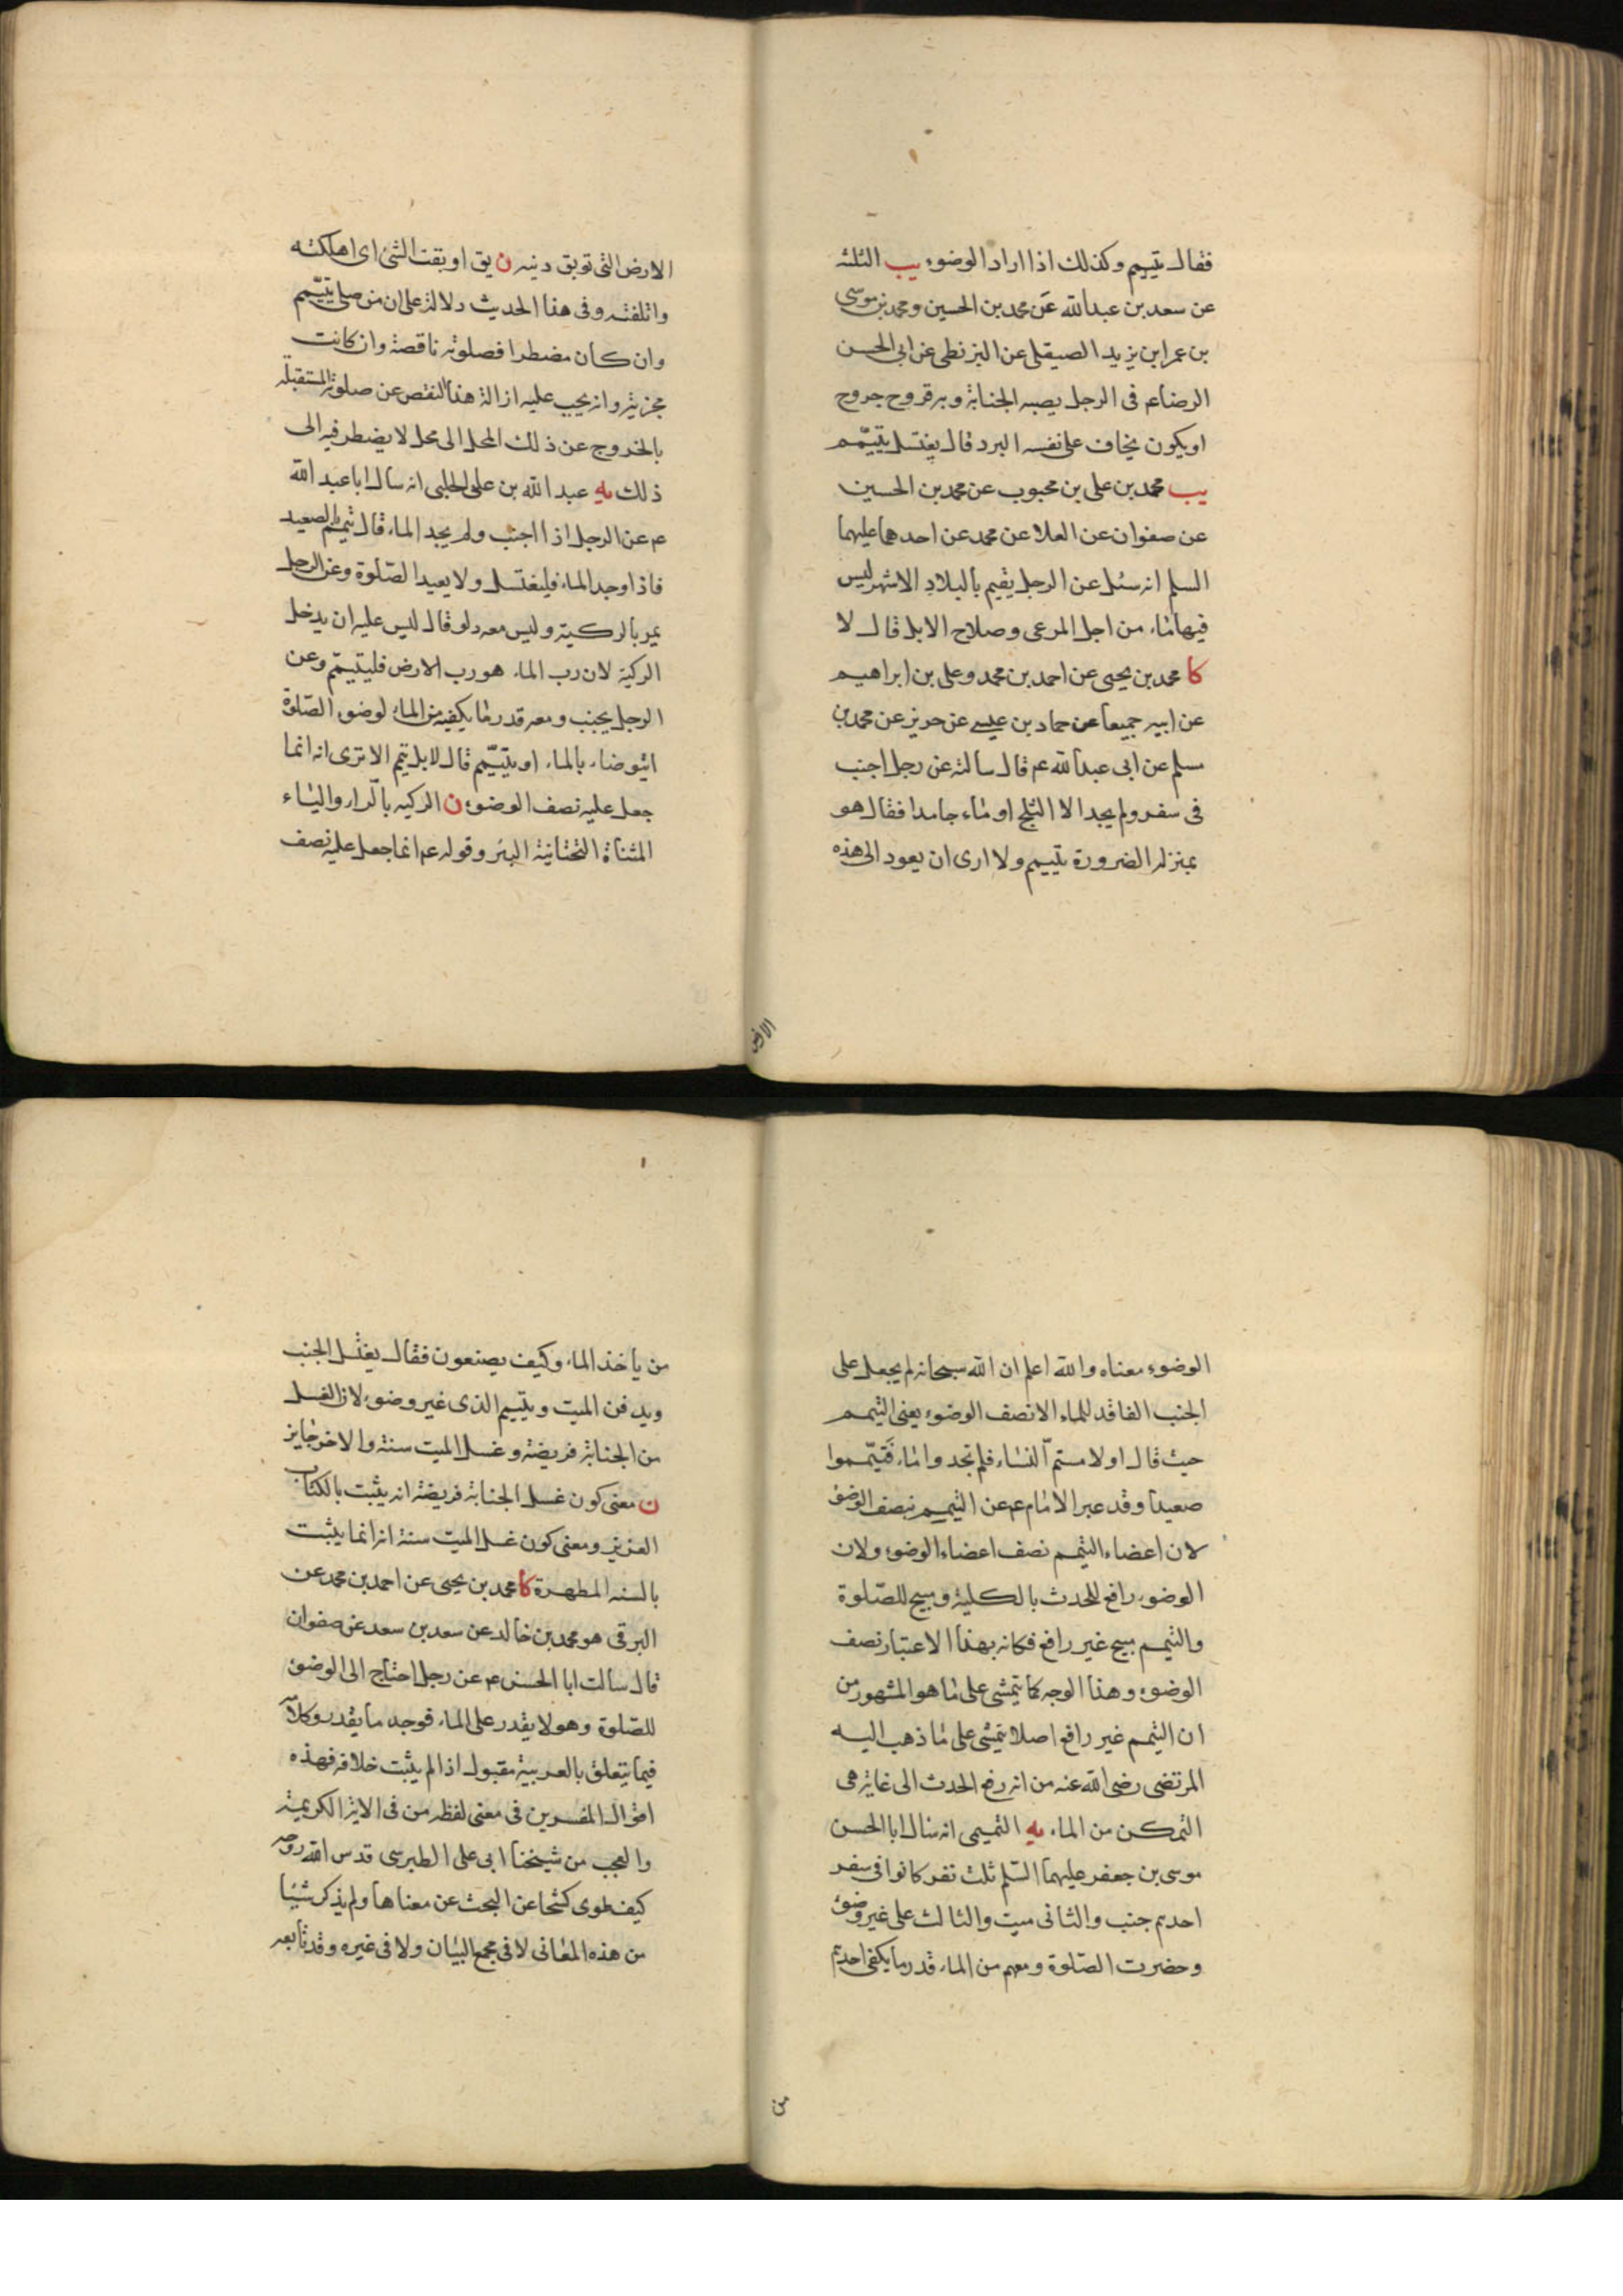 فقال يتيمم وكذلك اذا اراد الوضوء يب الثلثه
عن سعد بن عبدالله عن محمد بن الحسين و محمد بن موسى
بن عمر ابن يزيد الصيقلى عن البزنطى عن ابى الحسن
الرضاعم فى الرجل يصبه الجنابة وبه قروح جروح
او يكون يخاف على نفسه البرد قال يغتسل يتيمّم
يب محمد بن على بن محبوب عن محمد بن الحسين
عن صفوان عن العلا عن محمد عن احدهما عليهما
السلم انه سئل عن الرجل يقيم بالبلاد الاشهر ليس
فيها ماء من اجل المرعى وصلاح الابل قال لا
كا محمد بن يحيى عن احمد بن محمد وعلى بن ابراهيم
عن ابيه جميعا عن حماد بن عيسى عن حريز عن محمد بن
مسلم عن ابى عبدالله عم قال سالته عن رجل اجنب
فى سفر ولم يجد الا الثلج او ماء جامدا فقال هو
بمنزلة الضرورة يتيمم ولا ارى ان يعود الى هذه
الارض
الارض التى توبق دينه ن يق اوبقت الشئ اى اهلكته
واتلفته وفى هذا الحديث دلالة على ان من صلى بتيمّم
وان كان مضطرا فصلوته ناقصة وان كانت
مجزية وانه يجب عليه ازالة هذا النقص عن صلوته المستقبلة
بالخروج عن ذلك المحل الى محل لا يضطر فيه الى
ذلك يه عبد الله بن على الحلبى انه سال ابا عبد الله
عم عن الرجل اذا اجنب ولم يجد الماء قال يتيمم بالصعيد
فاذا وجد الماء فليغتسل ولا يعيد الصّلوة وعن الرجل
يمر بالركية وليس معه دلو قال ليس عليه ان يدخل
الركية لان رب الماء هو رب الارض فليتيمّم وعن
الرجل يجنب ومعه قدر ما يكفيه من الماء لوضوء الصّلوة
ايتوضاء بالماء او يتيمّم قال لا بل يتيمم الا ترى انه انما
جعل عليه نصف الوضوء ن الركيه بالّراء والياء
المثناة التحتانية البئر وقوله عم انما جعل عليه نصف
الوضوء معناه والله اعلم ان الله سبحانه لم يجعل على
الجنب الفاقد للماء الا نصف الوضوء يعنى التيمم
حيث قال او لامستم النساء فلم تجدوا ماء فتيمّموا
صعيدا وقد عبر الامام عم عن التيمم بنصف الوضوء
لان اعضاء التيمم نصف اعضاء الوضوء ولان
الوضوء رافع للحدث بالكلية ومبيح للصّلوة
والتيمم مبيح غير رافع فكانه بهذا الاعتبار نصف
الوضوء وهذا الوجه كما يتمشى على ما هو المشهور من
ان التيمم غير رافع اصلا يتمشى على ما ذهب اليه
المرتضى رضى الله عنه من انه رفع الحدث الى غاية هى
التمكن من الماء يه التميمى انه سال ابا الحسن
موسى بن جعفر عليهما السّلم ثلث نفر كانوا فى سفر
احدهم جنب والثانى ميت والثالث على غير وضوء
وحضرت الصّلوة ومعهم من الماء قدر ما يكفى احدهم
من
من ياخذ الماء وكيف يصنعون فقال يغتسل الجنب
ويدفن الميت ويتيمم الذى غير وضوء لان الغسل
من الجنابة فريضة وغسل الميت سنة والاخر جايز
ن معنى كون غسل الجنابة فريضة انه يثبت بالكتاب
العزيز ومعنى كون غسل الميت سنة انه انما يثبت
بالسنه المطهرة كا محمد بن يحيى عن احمد بن محمد عن
البرقى هو محمد بن خالد عن سعد بن سعد عن صفوان
قال سالت ابا الحسن عم عن رجل احتاج الى الوضوء
للصّلوة وهو لا يقدر على الماء فوجد ما يقدر وكلامه
فيما يتعلق بالعربية مقبول اذا لم يثبت خلافه فهذه
اقوال المفسرين فى معنى لفظه من فى الاية الكريمة
والعجب من شيخنا ابى على الطبرسى قدس الله روحه
كيف طوى كشحا عن البحث عن معناها ولم يذكر شيئا
من هذه المعانى لا فى مجمع البيان ولا فى غيره وقد تابعه